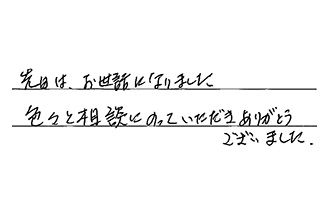 先日は、お世話になりました
色々と相談にのっていただきありがとう
ございました.